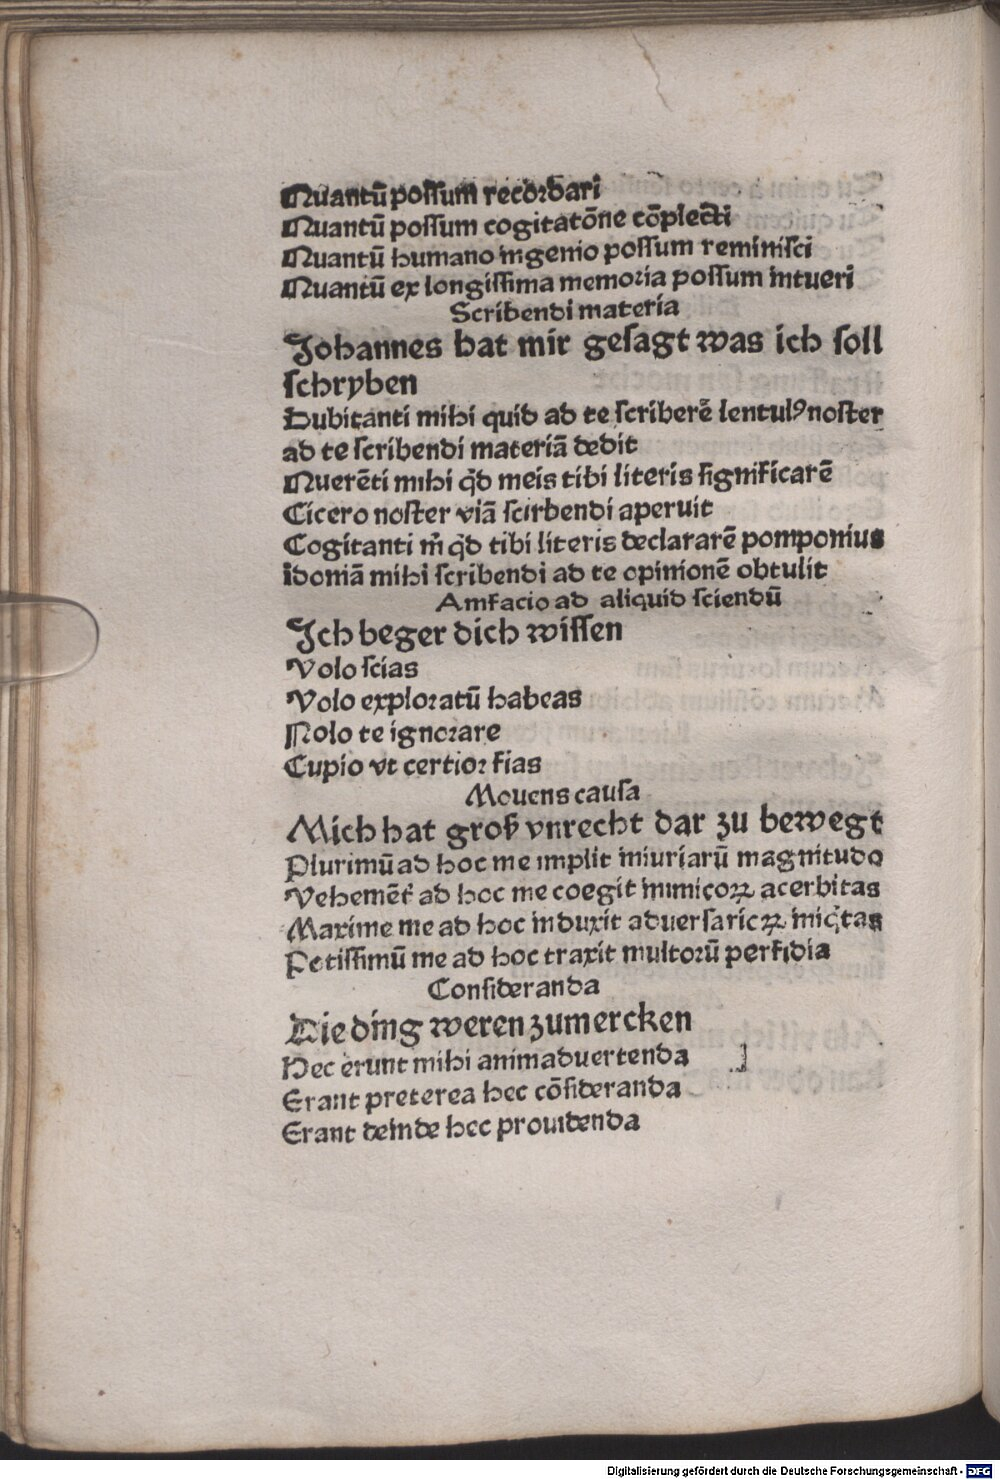 Quantū poſſum recordari
Quantū poſſum cogitatōne cōplecti
Quantū humano ingenio poſſum reminiſci
Quantū ex longiſſima memoria poſſum intueri
Scribendi materia
Johannes hat mir geſagt was ich ſoll
ſchryben
Dubitanti mihi quid ad te ſcriberē lentulꝰ noſter
ad te ſcribendi materiā dedit
Querēti mihi qd̄ meis tibi literis ſignificarē
Cicero noſter viā ſcirbendi aperuit
Cogitanti m̄ qd̄ tibi literis declararē pomponius
idoniā mihi ſcribendi ad te opinionē obtulit
Amfacio ad aliquid ſciendū
Ich beger dich wiſſen
Volo ſcias
Volo exploratū habeas
Nolo te ignorare
Cupio vt certior fias
Mouens cauſa
Mich hat groß vnrecht dar zu bewegt
Plurimū ad hoc me implit iniuriarū magnitudo
Vehemēt̄ ad hoc me coegit inimicoꝝ acerbitas
Maxime me ad hoc induxit aduerſarioꝝ iniq̇tas
Potiſſimū me ad hoc traxit multorū perfidia
Conſideranda
Die ding weren zumercken
Hec erunt mihi animaduertenda
Erant preterea hec cōſideranda
Erant deinde hec prouidenda
Digitalisierung gefördert durch die Deutsche Forschungsgemeinschaft - DFG